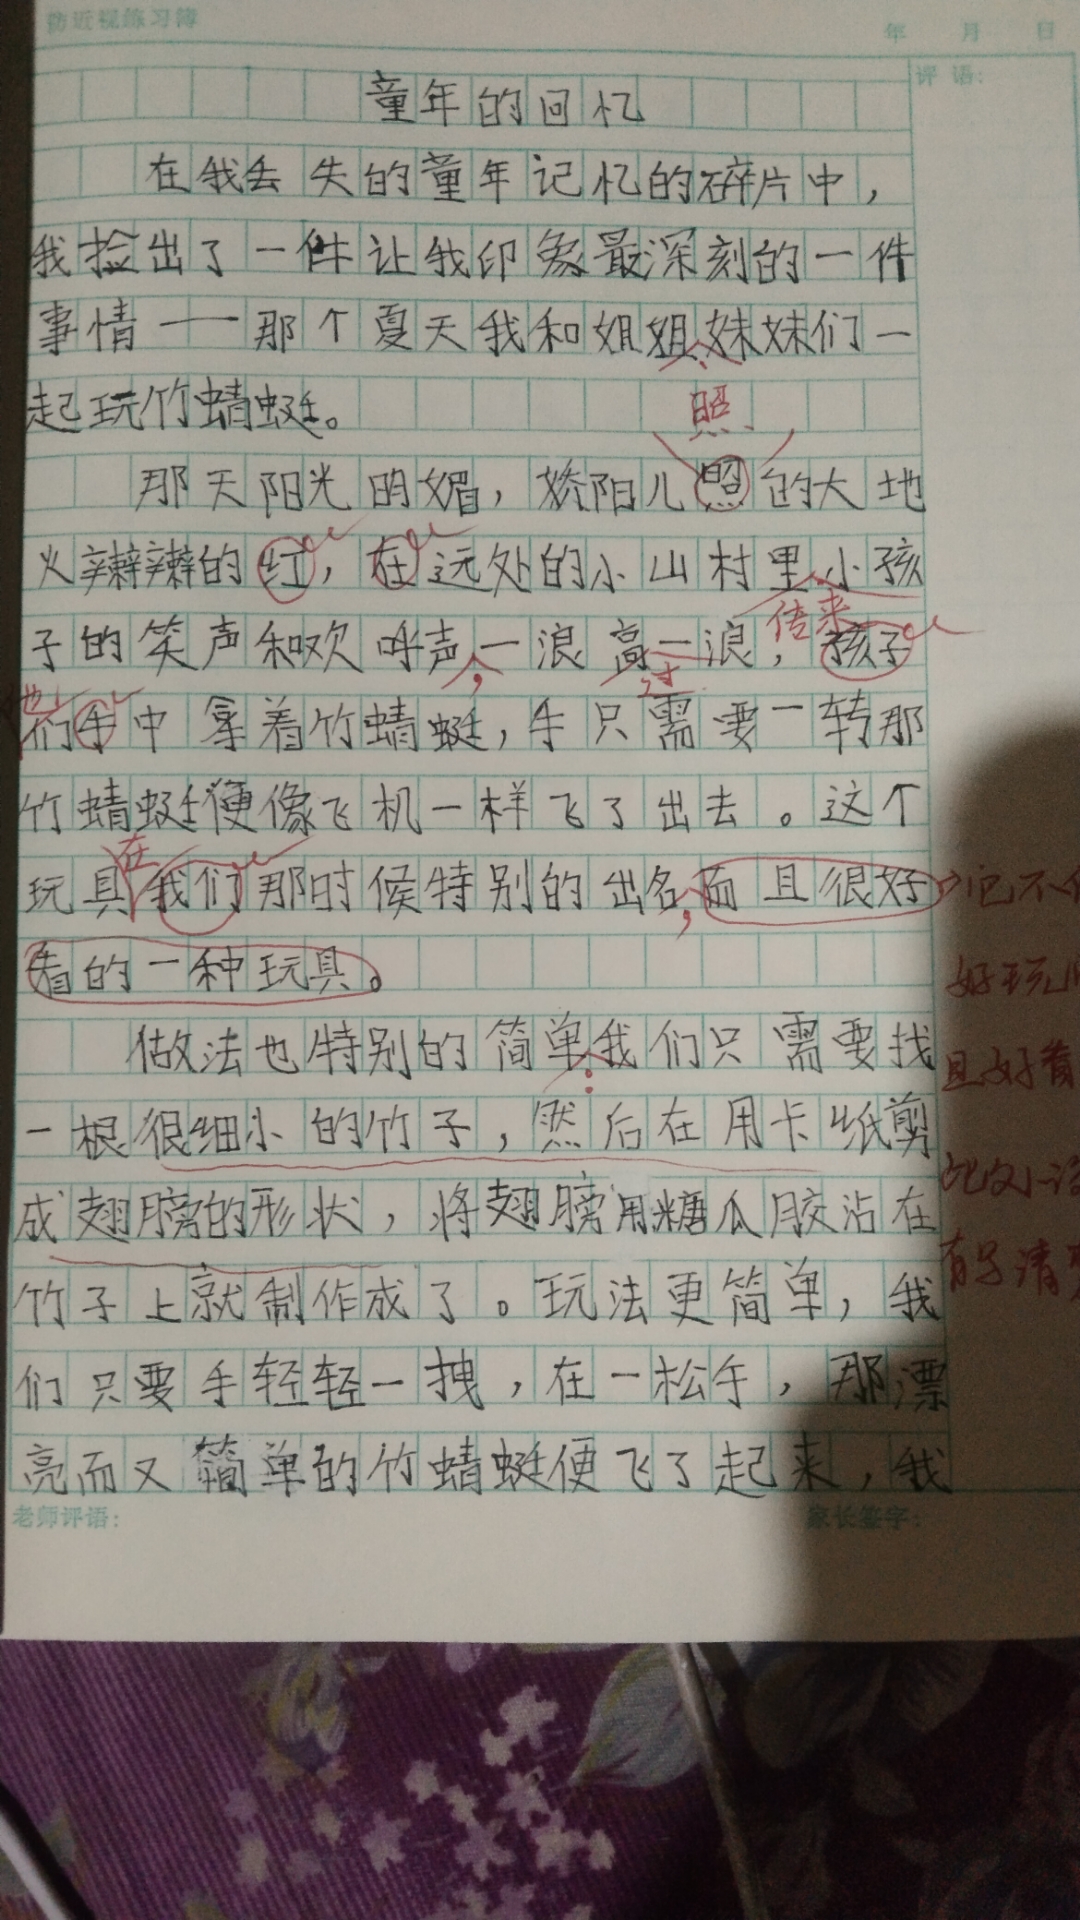 防近视练习簿
年 月 日
评语:
童年的回忆
在我丢失的童年记忆的碎片中，
我捡出了一件让我印象最深刻的一件
事情——那个夏天我和姐姐妹妹们一
起玩竹蜻蜓。
照
那天阳光明媚，娇阳儿照的大地
火辣辣的红，在远处的小山村里小孩
传来
子的笑声和欢呼声一浪高一浪，孩子
，
过
他
们手中拿着竹蜻蜓，手只需要一转那
竹蜻蜓便像飞机一样飞了出去。这个
在
玩具我们那时候特别的出名，而且很好
它不
看的一种玩具。
好玩
做法也特别的简单：我们只需要找
且好看
一根很细小的竹子，然后在用卡纸剪
成翅膀的形状，将翅膀用糖瓜胶沾在
竹子上就制作成了。玩法更简单，我
们只要手轻轻一拽，在一松手，那漂
亮而又简单的竹蜻蜓便飞了起来，我
老师评语:
家长签字: